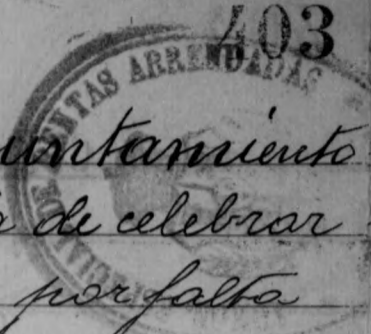 403
RENTAS ARRENDADAS
untamiento
de celebrar
por falta